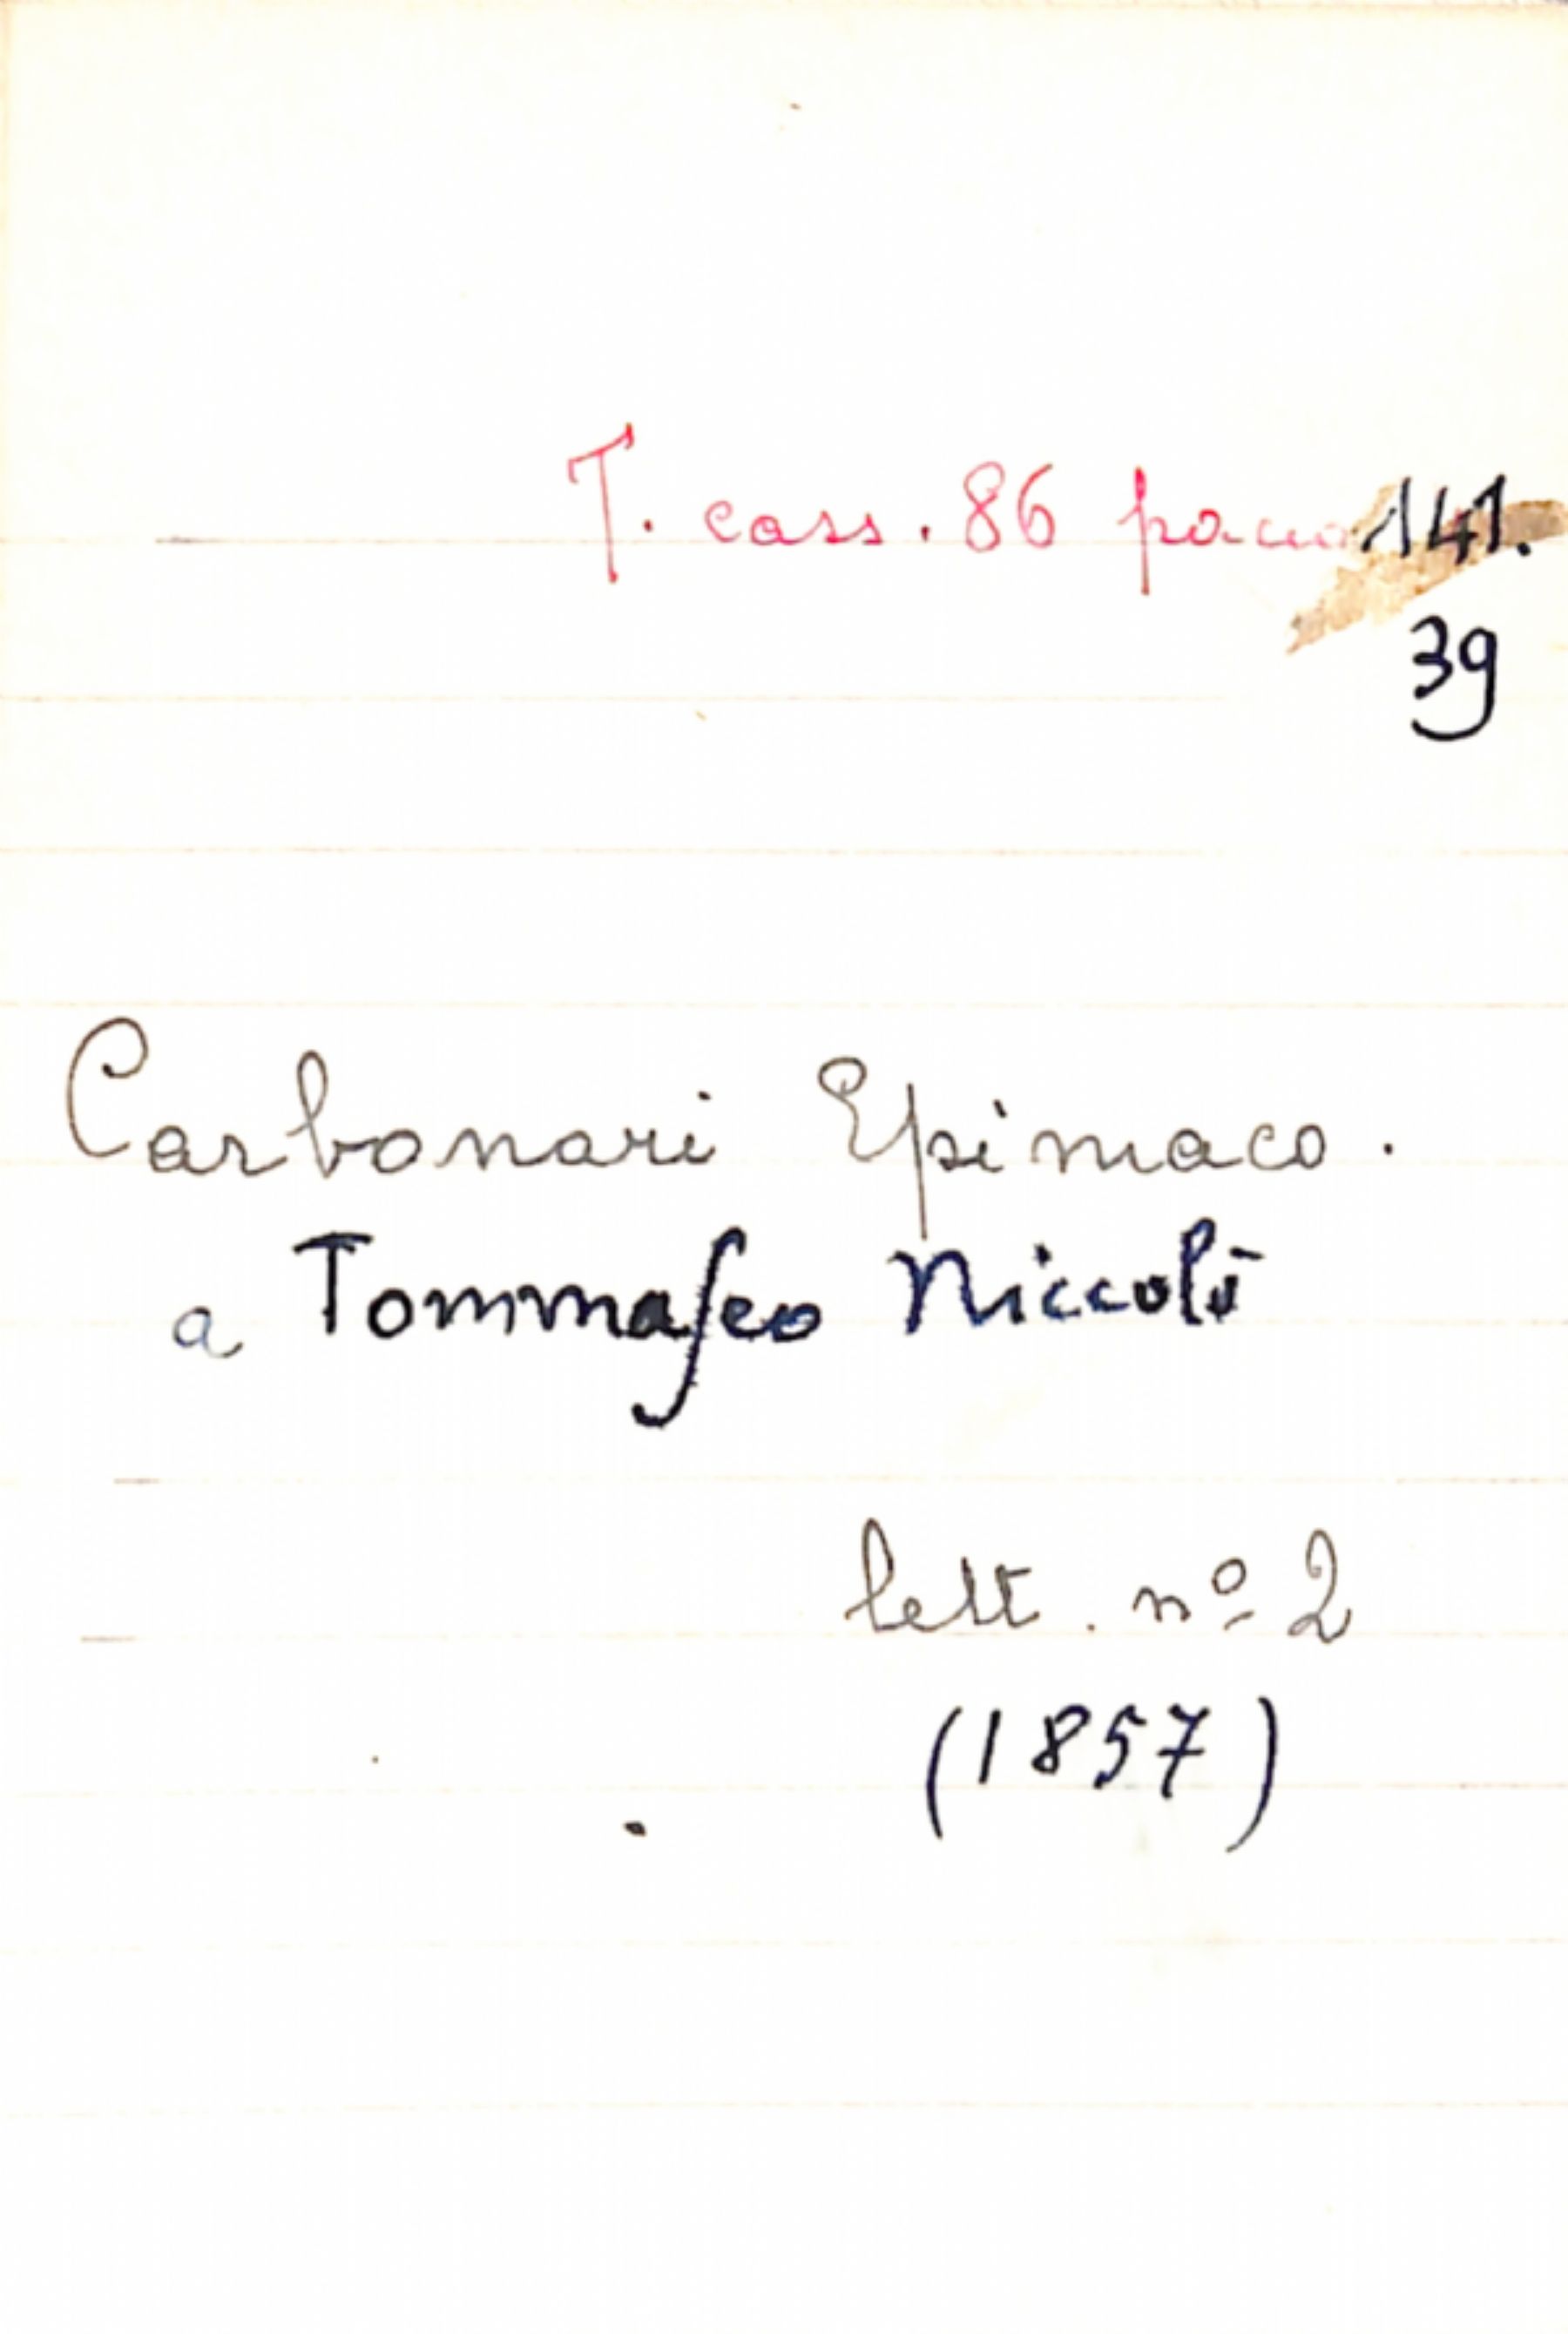 T. cass. 86 pacco 141.
39
Carbonari Epimaco.
a Tommaseo Niccolò
lett. nº 2
(1857)